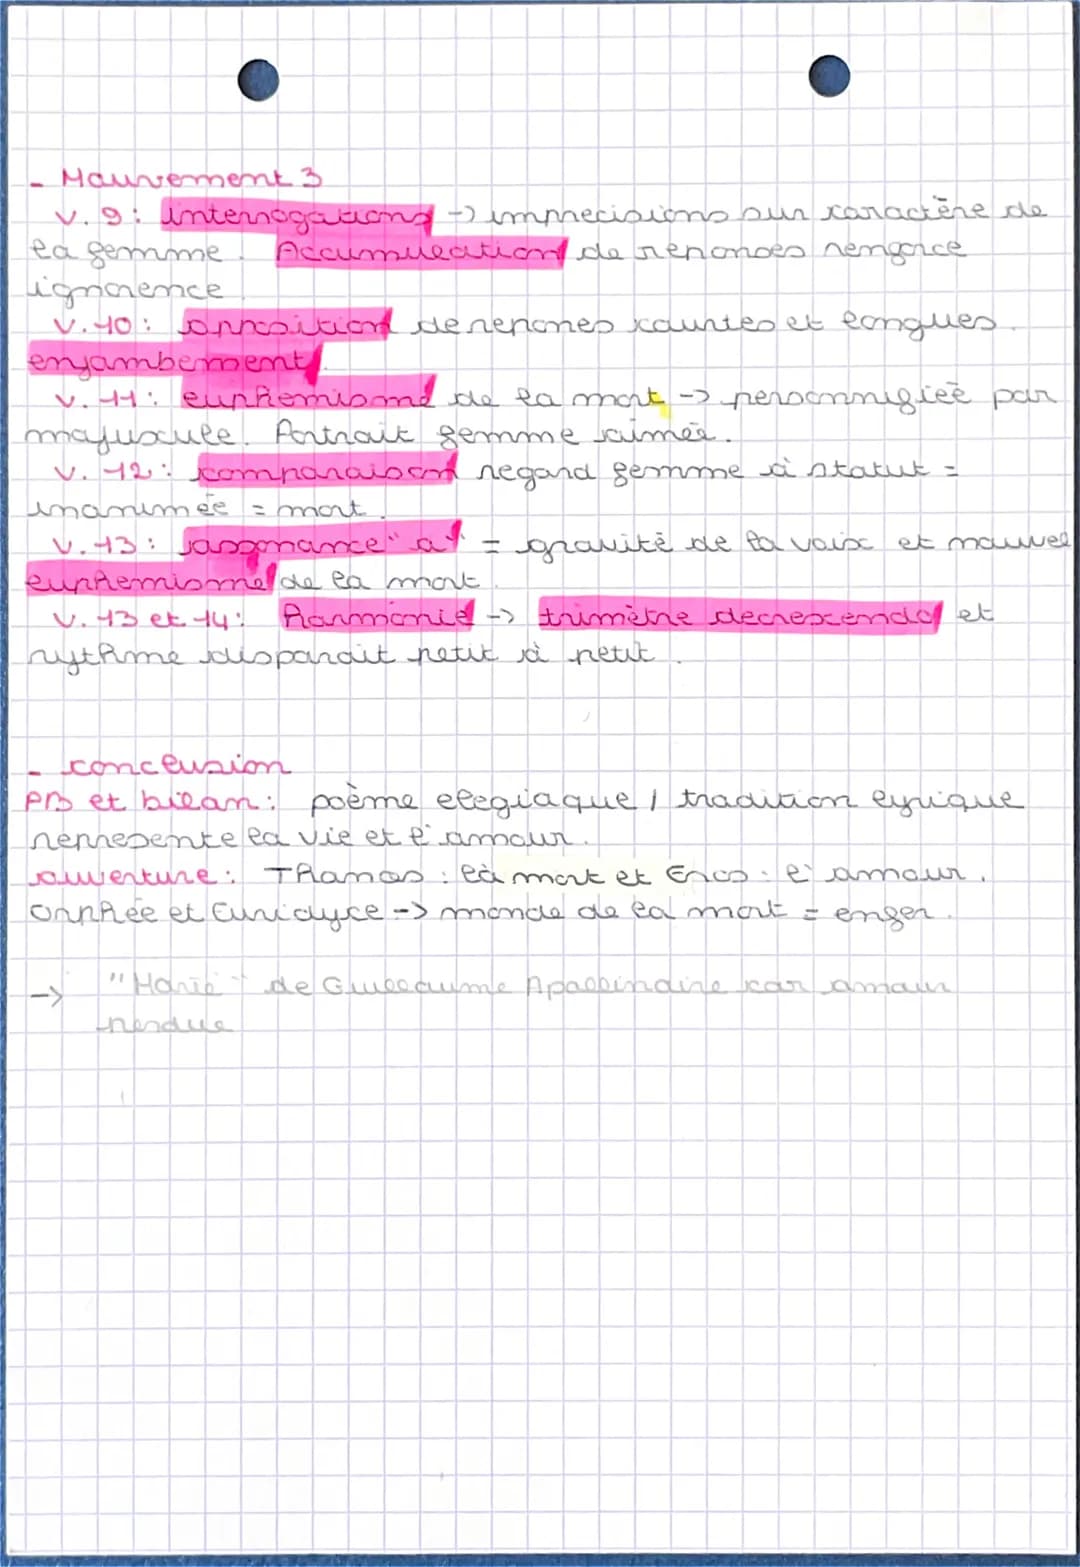 - Mouvement 3
v. 9 : interrogations -> imprecisions sur caractère de
la femme. Accumulation de reponses renforce
ignorence
v. 10 : opposition de repones courtes et longues.
enjambement.
v. 11 : euphemisme de la mort -> personnifiée par
majuscule. Portrait femme aimée.
v. 12 : comparaison regard femme à statut =
inanimée = mort.
v. 13 : assonance "a" = gravité de la voix et nouvel
euphemisme de la mort.
v. 13 et 14 : Harmonie -> trimètre decrescendo et
rythme disparait petit à petit.
- conclusion
PB et bilan : poème elegiaque / tradition lyrique
represente la vie et l'amour.
ouverture : Thanos : la mort et Eros : l'amour.
Orphée et Euridyce -> monde de la mort = enfer.
-> "Marie" de Guillaume Apollinaire car amour
perdue